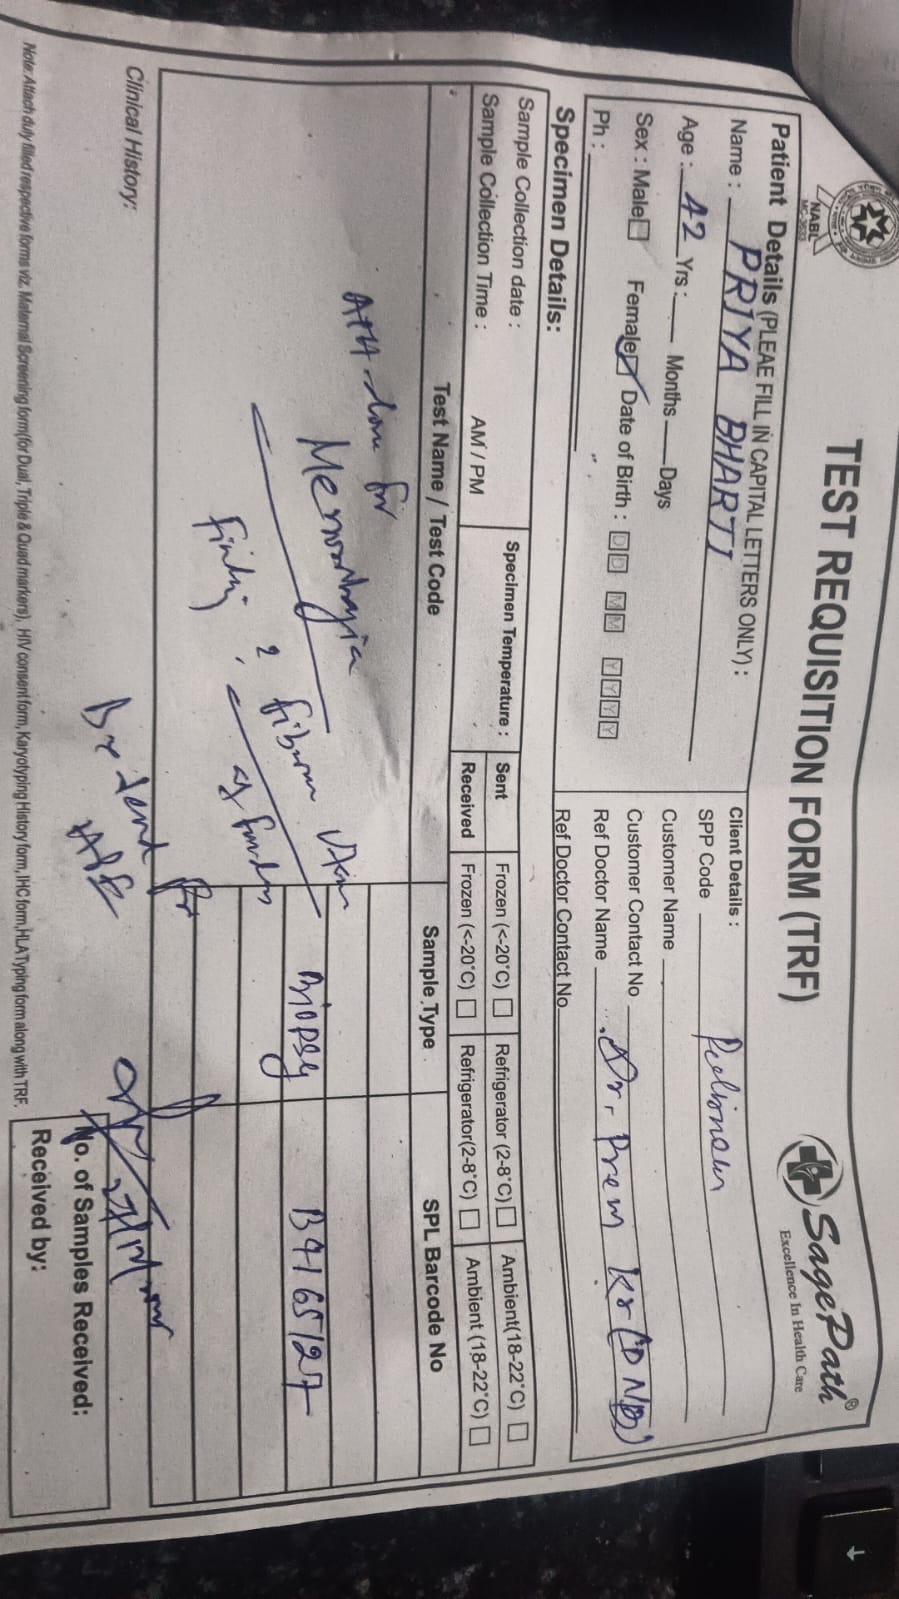 NABL
TEST REQUISITION FORM (TRF)
SagePath®
Excellence In Health Care
Patient Details (PLEAE FILL IN CAPITAL LETTERS ONLY) :
Name : PRIYA BHARTI
Age : 42 Yrs : Months Days
Sex : Male Female Date of Birth : DD MM YYYY
Ph :
Client Details :
SPP Code
Customer Name
Customer Contact No
Ref Doctor Name Dr. Prem Kr (DNB)
Ref Doctor Contact No
Specimen Details:
Sample Collection date :
Sample Collection Time : AM / PM
Specimen Temperature :
Sent Frozen (<-20°C) Refrigerator (2-8°C) Ambient(18-22°C)
Received Frozen (<-20°C) Refrigerator(2-8°C) Ambient (18-22°C)
Test Name / Test Code Sample Type SPL Barcode No
for
Menorrhagia
Biopsy B4165127
? fibroid
Clinical History:
No. of Samples Received:
Received by:
Note: Attach duly filled respective forms viz. Maternal Screening form(for Dual, Triple & Quad markers), HIV consent form, Karyotyping History form, IHC form,HLA Typing form along with TRF.